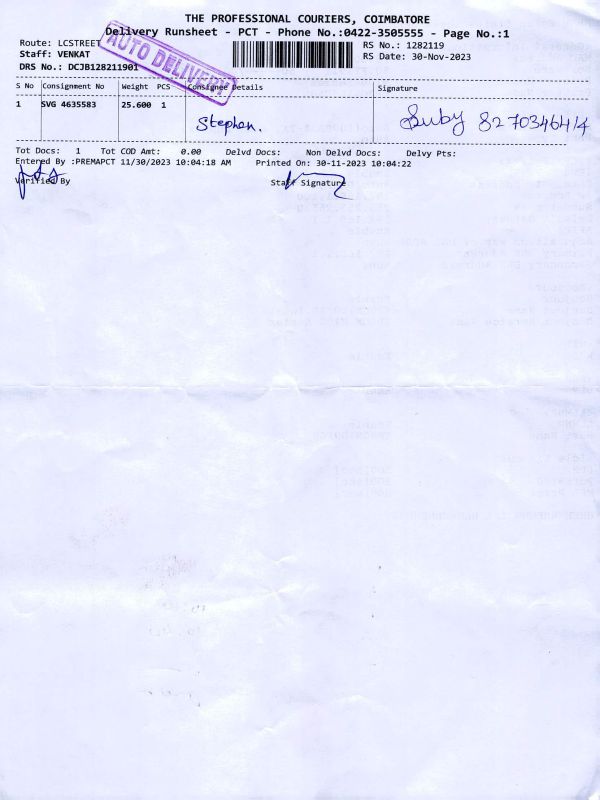 THE PROFESSIONAL COURIERS, COIMBATORE
Delivery Runsheet - PCT - Phone No.:0422-3505555 - Page No.:1
Route: LCSTREET
RS No.: 1282119
Staff: VENKAT
RS Date: 30-Nov-2023
DRS No.: DCJB128211901
AUTO DELIVERY
S No Consignment No Weight PCS Consignee Details Signature
1 SVG 4635583 25.600 1
Stephen. Suby 8270346414
Tot Docs: 1 Tot COD Amt: 0.00 Delvd Docs: Non Delvd Docs: Delvy Pts:
Entered By :PREMAPCT 11/30/2023 10:04:18 AM Printed On: 30-11-2023 10:04:22
Verified By Staff Signature